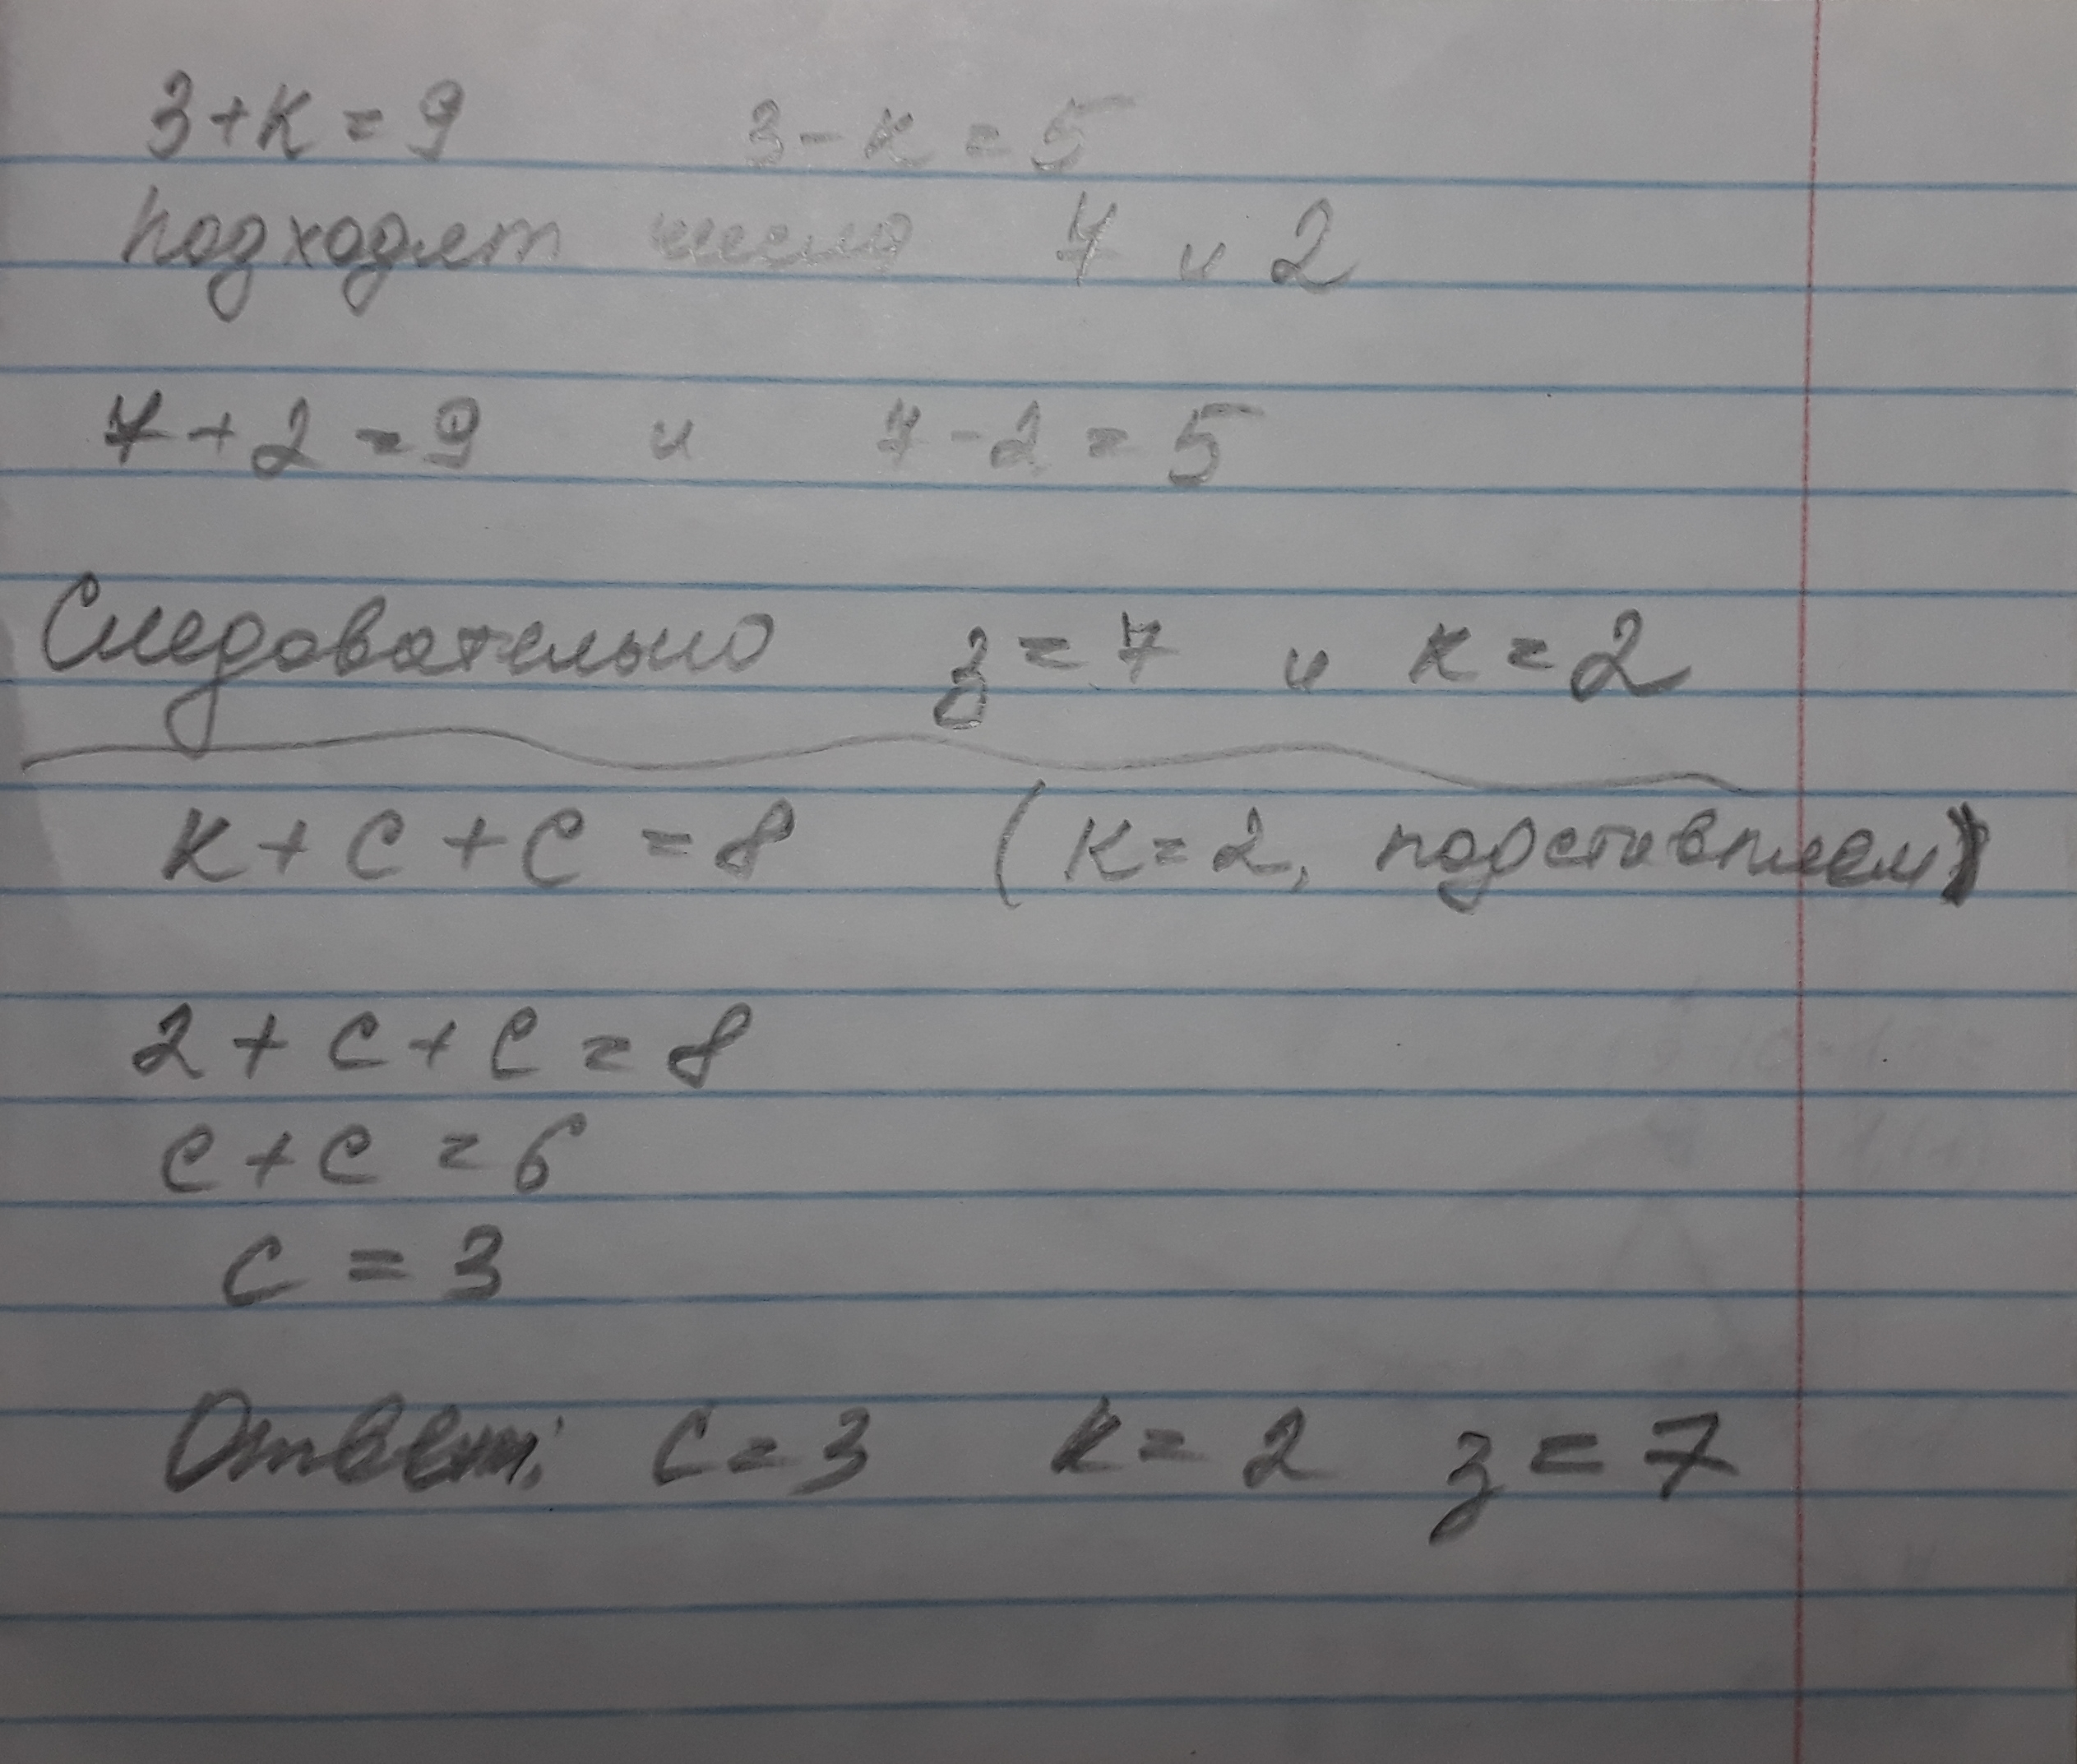 з+к=9 з-к=5
подходят числа 7 и 2
7+2=9 и 7-2=5
Следовательно з=7 и к=2
к+с+с=8 (к=2, подставляем)
2+с+с=8
с+с=6
с=3
Ответ: с=3 к=2 з=7